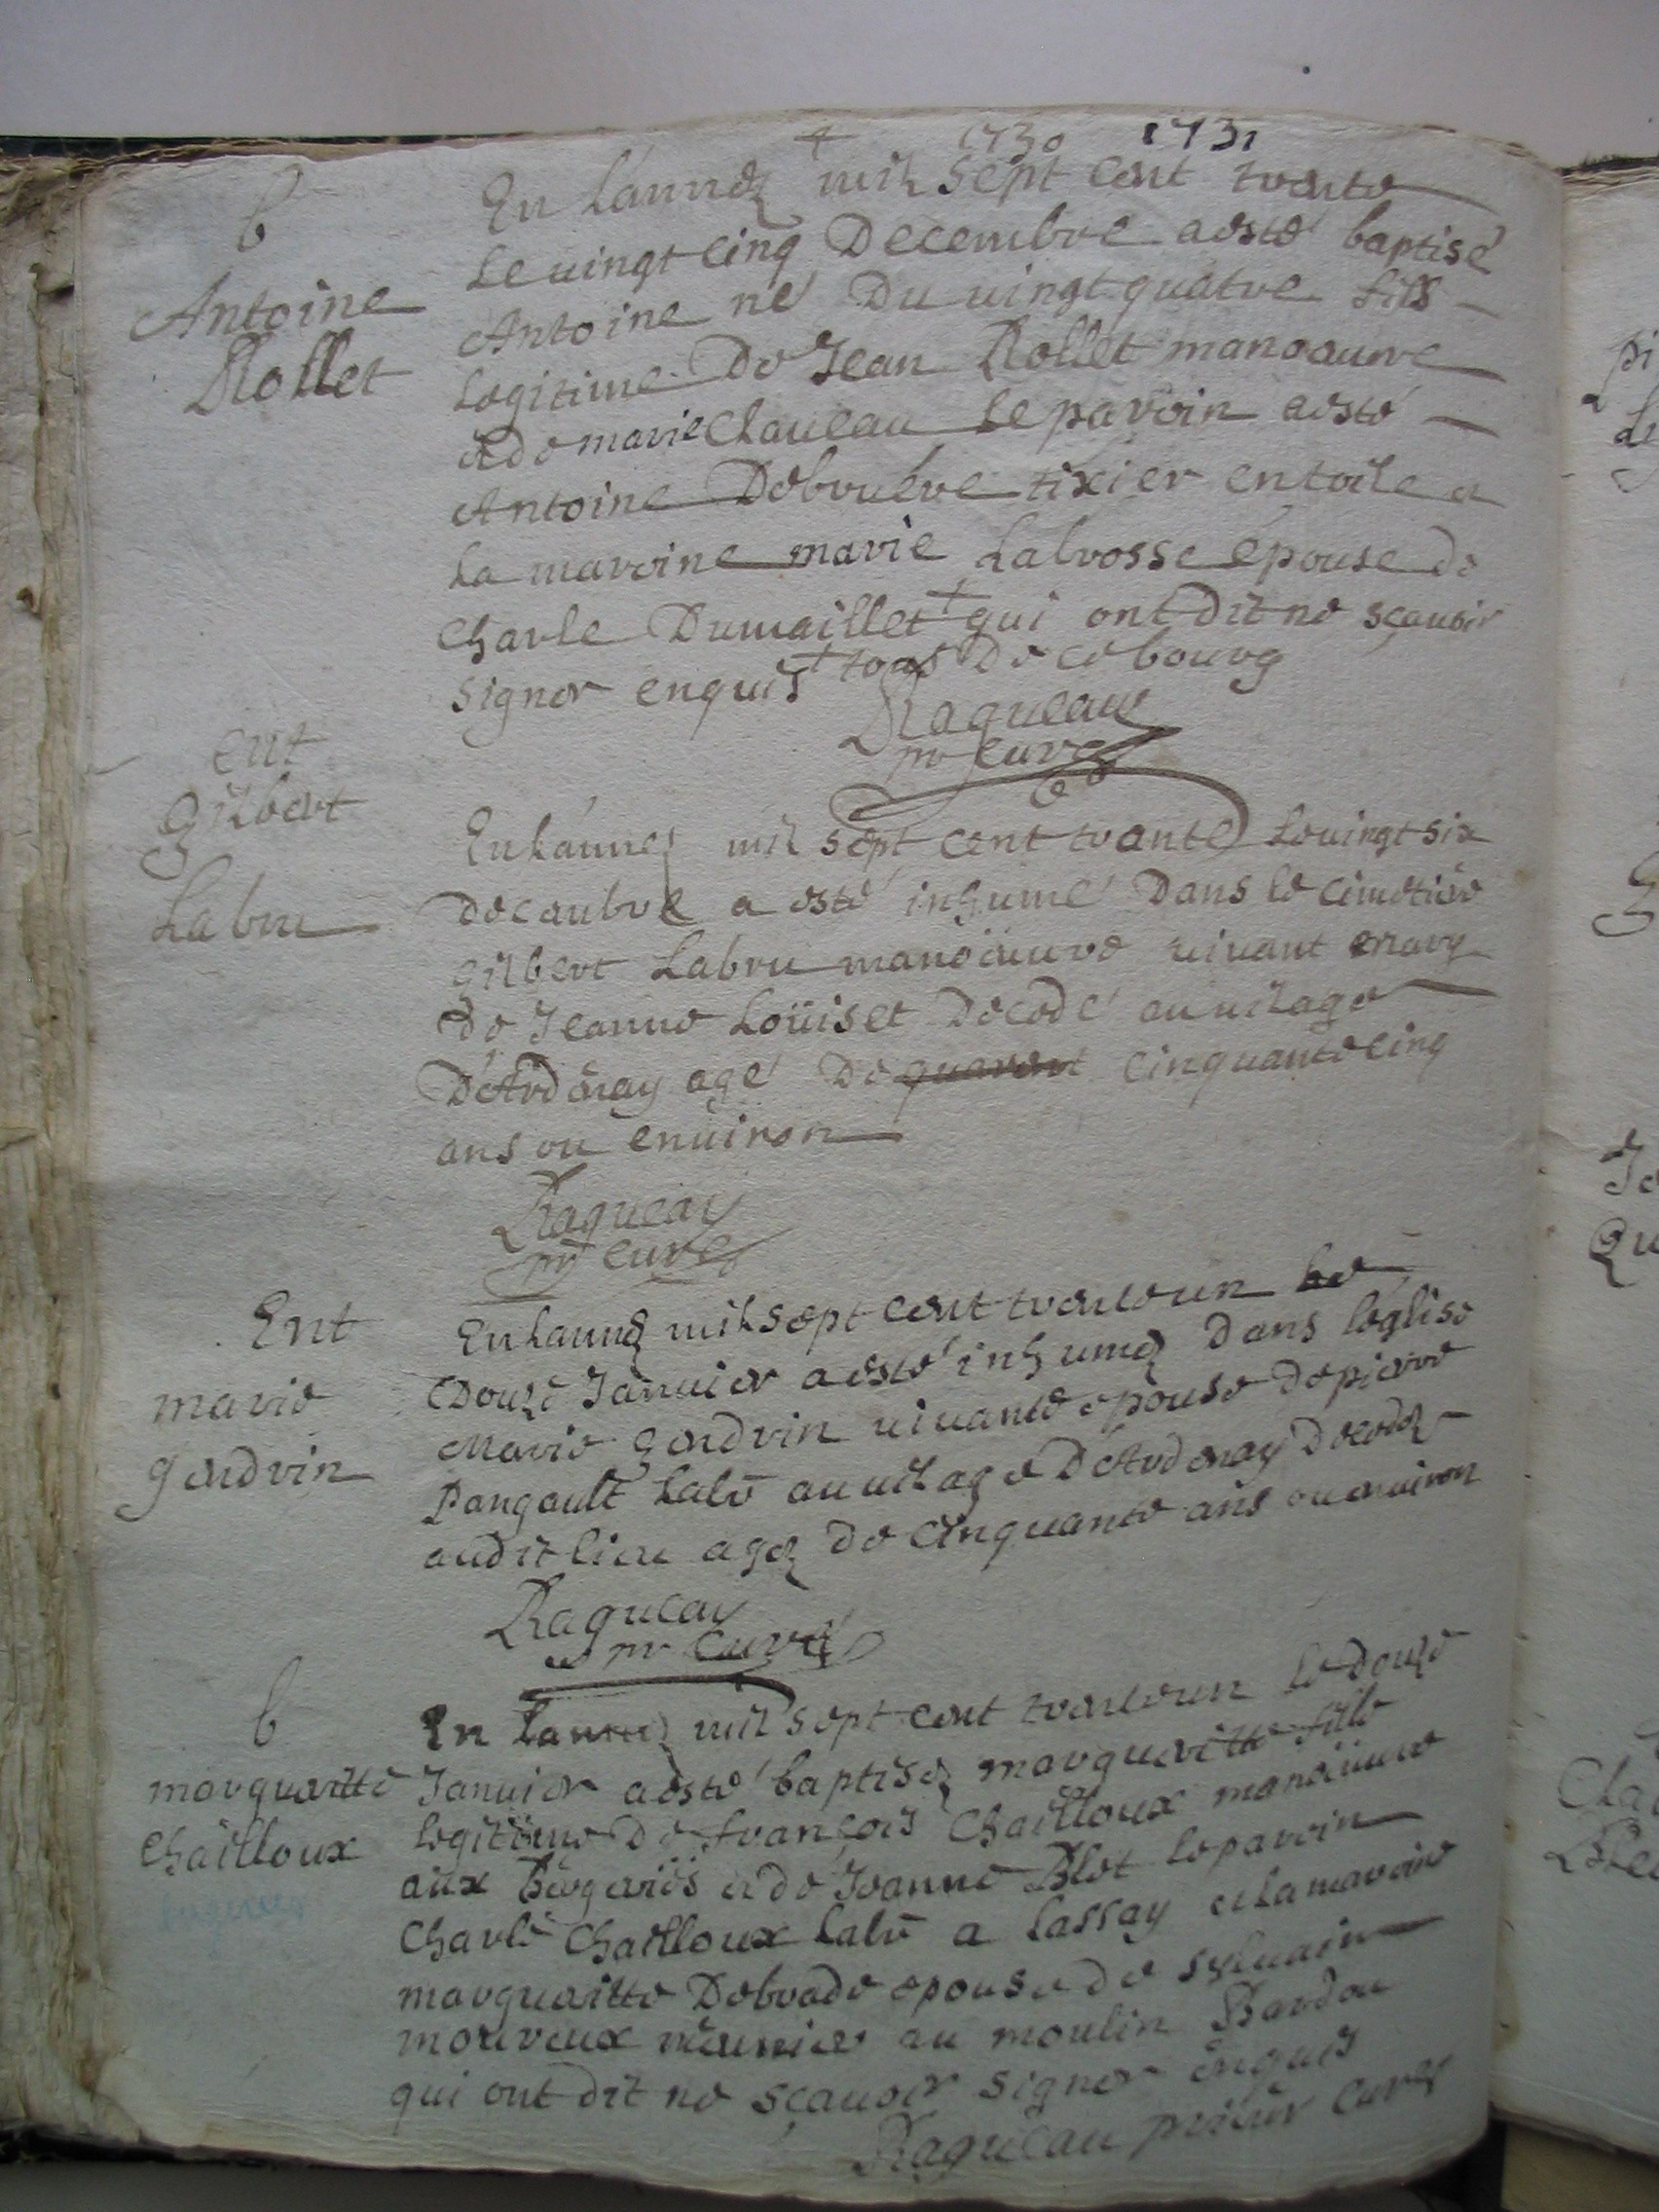 1730 1731
b
Antoine
Rollet
En lánnéz mil sept cent trente
le vingt cinq Decembre a esté baptisé
Antoine né Du vingt quatre fils
legitime De Jean Rollet manoeuvre
et de marie Chauleau le parein a esté
Antoine Debruére tixier en toile et
la mareine marie Labrosse épouse de
Charle Dumaillet + qui ont dit ne sçavoir
signer enquis + tous De ce bourg
Ragueau
pr curé
ent
Gilbert
Labru
En lánnez mil sept cent trante le vingt six
decembre a esté inhumé Dans le cimetiere
gilbert Labru manoeuvre vivant mary
de Jeanne Loüiset Decedé au vilage
D'Ardenay agé De quarent cinquante cinq
ans ou environ
Ragueau
pr curé
Ent
marie
gendrin
En lannéz mil sept cent trente un le
Douze Janvier a esté inhuméz Dans léglise
Marie gendrin vivante epouse de pierre
Pangault Labr au vilage D'Ardenay Decedéz
audit lieu agéz de cinquante ans ou environ
Ragueau
pr curé
b
margueritte
Chailloux
En lannéz mil sept cent trente un le douze
Janvier a esté baptiséz margueritte fille
legitime De françois Chailloux manoeuvre
aux Bergeriës et de Jeanne Blot le parein
Charle Chailloux Labr a Lassay et la mareine
margueritte Debrade epouse de sylvain
moreveux meunier au moulin Bardou
qui ont dit ne sçavoir signer enquis
Ragueau prieur curé